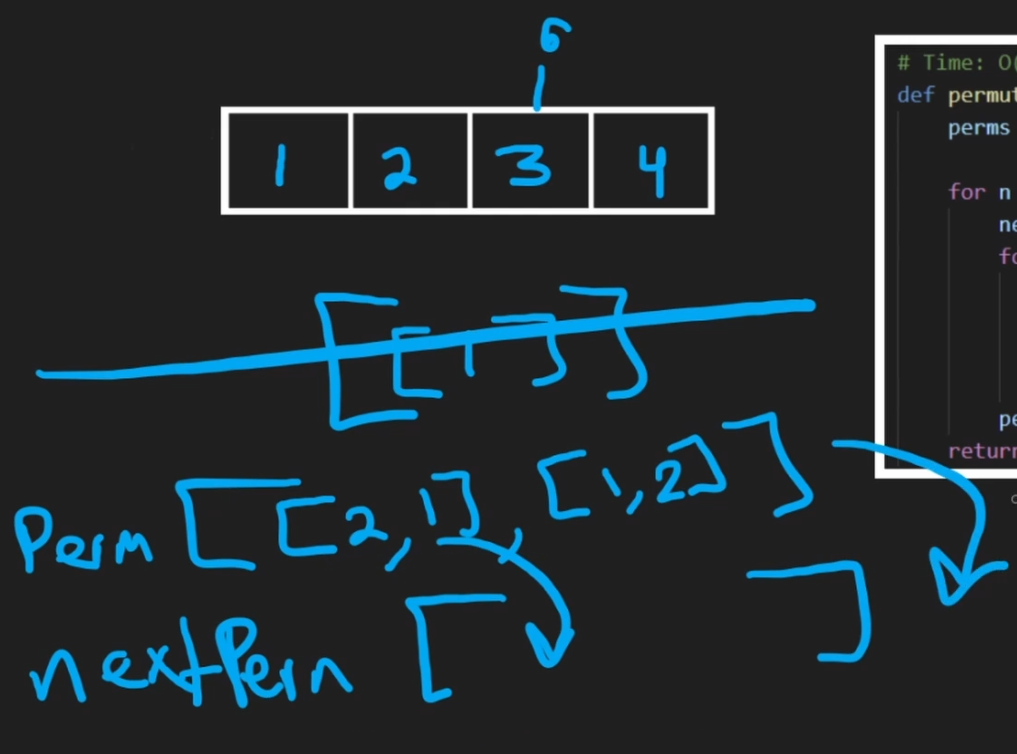 n
1 2 3 4
[[1]]
Perm [[2,1], [1,2]]
nextPerm [ ]
# Time: O(
def permut
perms
for n
ne
fo
pe
return